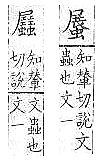 知輦切說文
蟲也文一
知輦
切說
文蟲也
文一